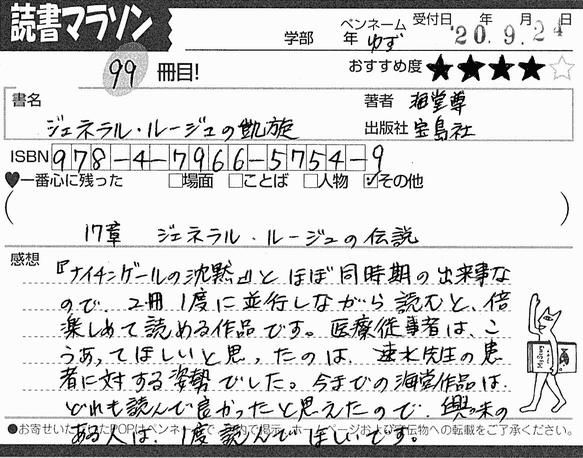 読書マラソン
学部 年 ペンネーム ゆず 受付日 年 月 日
'20.9.24
99 冊目! おすすめ度 ★★★★☆
書名 ジェネラル・ルージュの凱旋 著者 海堂尊
出版社 宝島社
ISBN 978-4-7966-5754-9
♥一番心に残った □場面 □ことば □人物 ☑その他
( 17章 ジェネラル・ルージュの伝説 )
感想
『ナイチンゲールの沈黙』とほぼ同時期の出来事な
ので、2冊1度に並行しながら読むと、倍
楽しめて読める作品です。医療従事者は、こ
うあってほしいと思ったのは、速水先生の患
者に対する姿勢でした。今までの海堂作品は、
どれも読んで良かったと思えたので、興味の
ある人は、1度読んでほしいです。
●お寄せいただいたPOPはペンネームで 内で掲示、ホームページおよび宣伝物への転載をご了承ください。